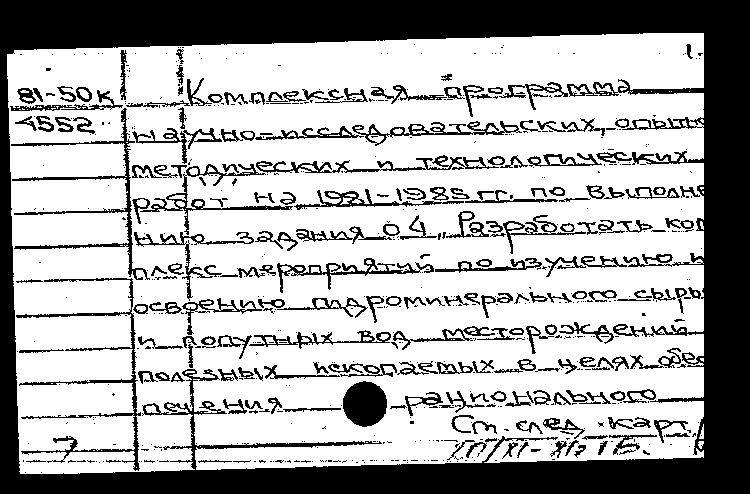 1.
81-50к Комплексная программа
4552 научно-исследовательских, опытно
методических и технологических
работ на 1981-1985 гг. по выполне
нию задания 04 „Разработать ком
плекс мероприятий по изучению и
освоению гидроминерального сырья
и попутных вод месторождений
полезных ископаемых в целях обес
печения рационального
См. след. карт.
7